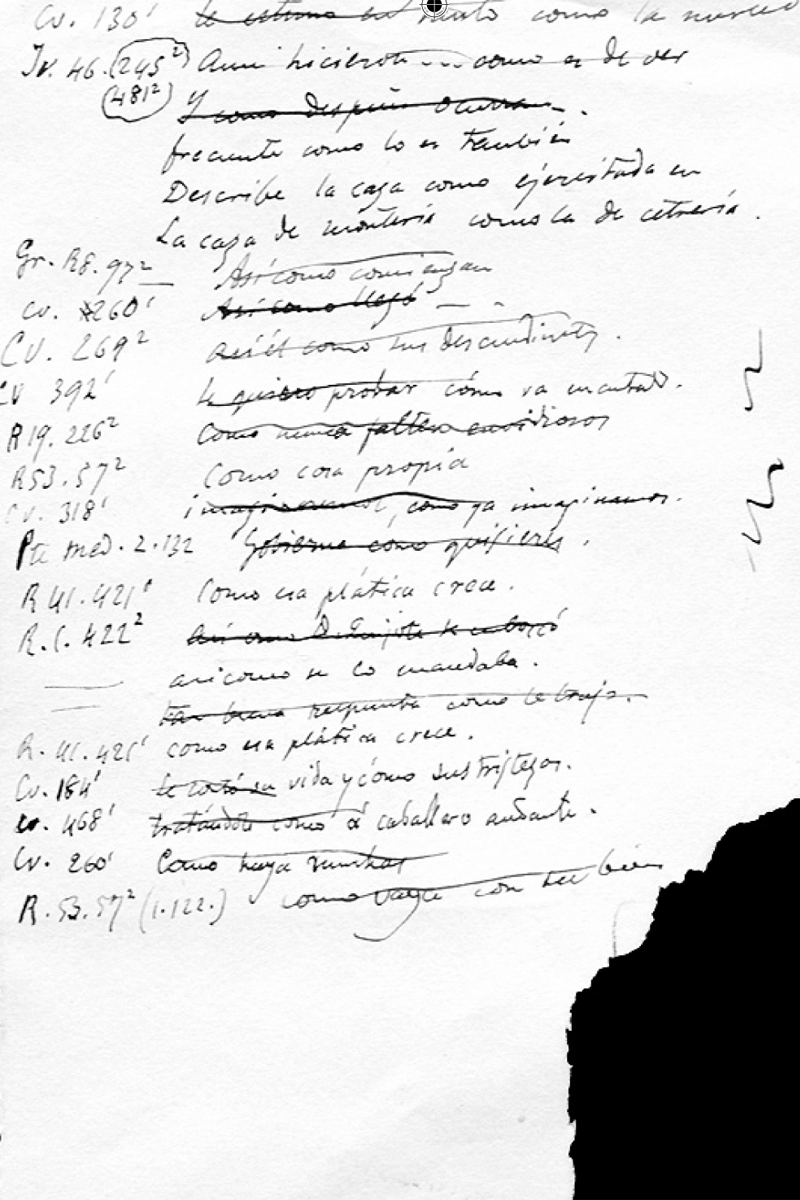 Cv. 130¹ le estimo en tanto como la merced
Jv. 46. (245²) Aun hicieron ... como es de ver
(481²) Y como después ocurra - .
frecuente como lo es también
Describe la caza como ejercitada en
La caza de montería como la de cetrería .
Gr. R8. 97² Así como comienzan
Cv. 260¹ Así como llegó — - .
Cv. 269² así él como sus descendientes .
Cv 392¹ le quiero probar cómo va encantado.
R19. 226² Como nunca falten envidiosos
R53. 57² Como cosa propia
Cv. 318¹ , como ya imaginamos.
Pte med. 2. 132 Gobierna como quisieres .
R 41. 421¹ Como esa plática crece .
R. C. 422² Así como D. Quijote se embozó
asicomo se lo mandaba .
tan buena respuesta como le trujo. -
R. 41. 421¹ como esa plática crece .
Cv. 184¹ le contó su vida y cómo sus tristezas.
Cv. 468¹ tratándole como á caballero andante .
Cv. 260¹ Como haya muchas
R. 53. 57² (1.122.) como vaya con tu bien